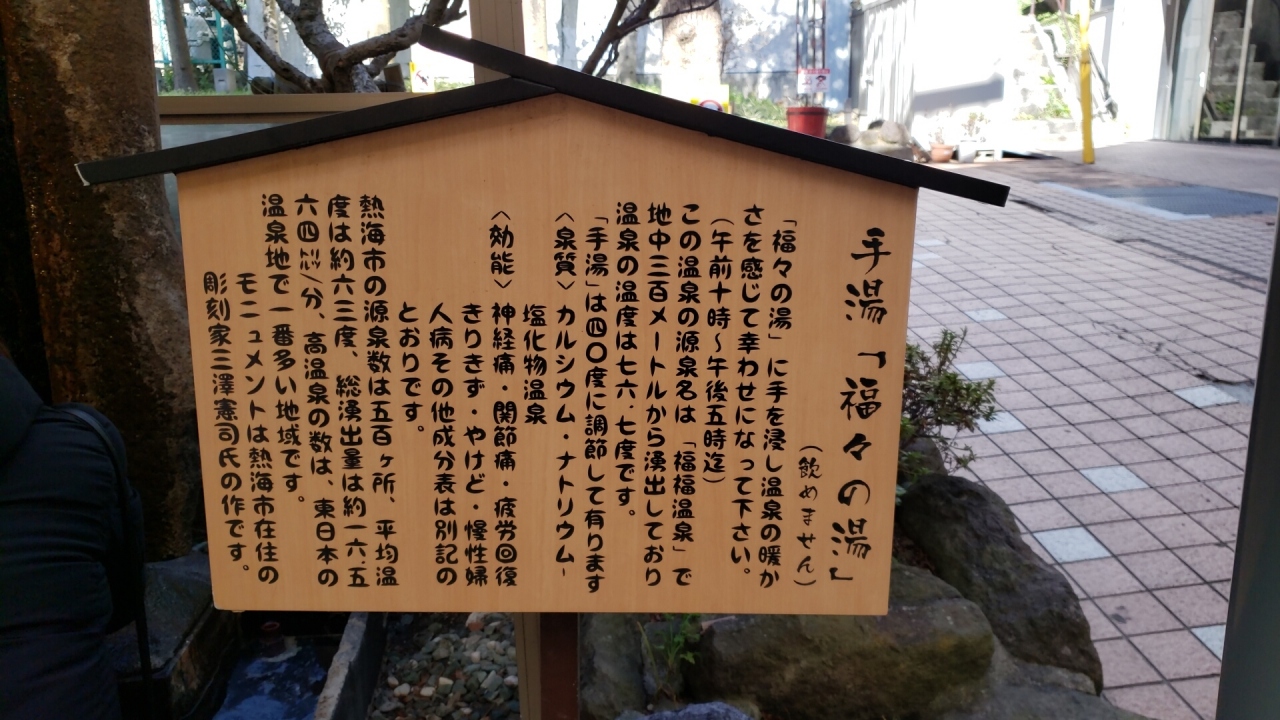 手湯「福々の湯」
(飲めません)
「福々の湯」に手を浸し温泉の暖か
さを感じて幸わせになって下さい。
(午前十時～午後五時迄)
この温泉の源泉名は「福福温泉」で
地中三百メートルから湧出しており
温泉の温度は七六.七度です。
「手湯」は四〇度に調節して有ります
〈泉質〉カルシウム・ナトリウム-
塩化物温泉
〈効能〉神経痛・関節痛・疲労回復
きりきず・やけど・慢性婦
人病その他成分表は別記の
とおりです。
熱海市の源泉数は五百ヶ所、平均温
度は約六三度、総湧出量は約一六.五
六四㌧/分、高温泉の数は、東日本の
温泉地で一番多い地域です。
モニュメントは熱海市在住の
彫刻家三澤憲司氏の作です。